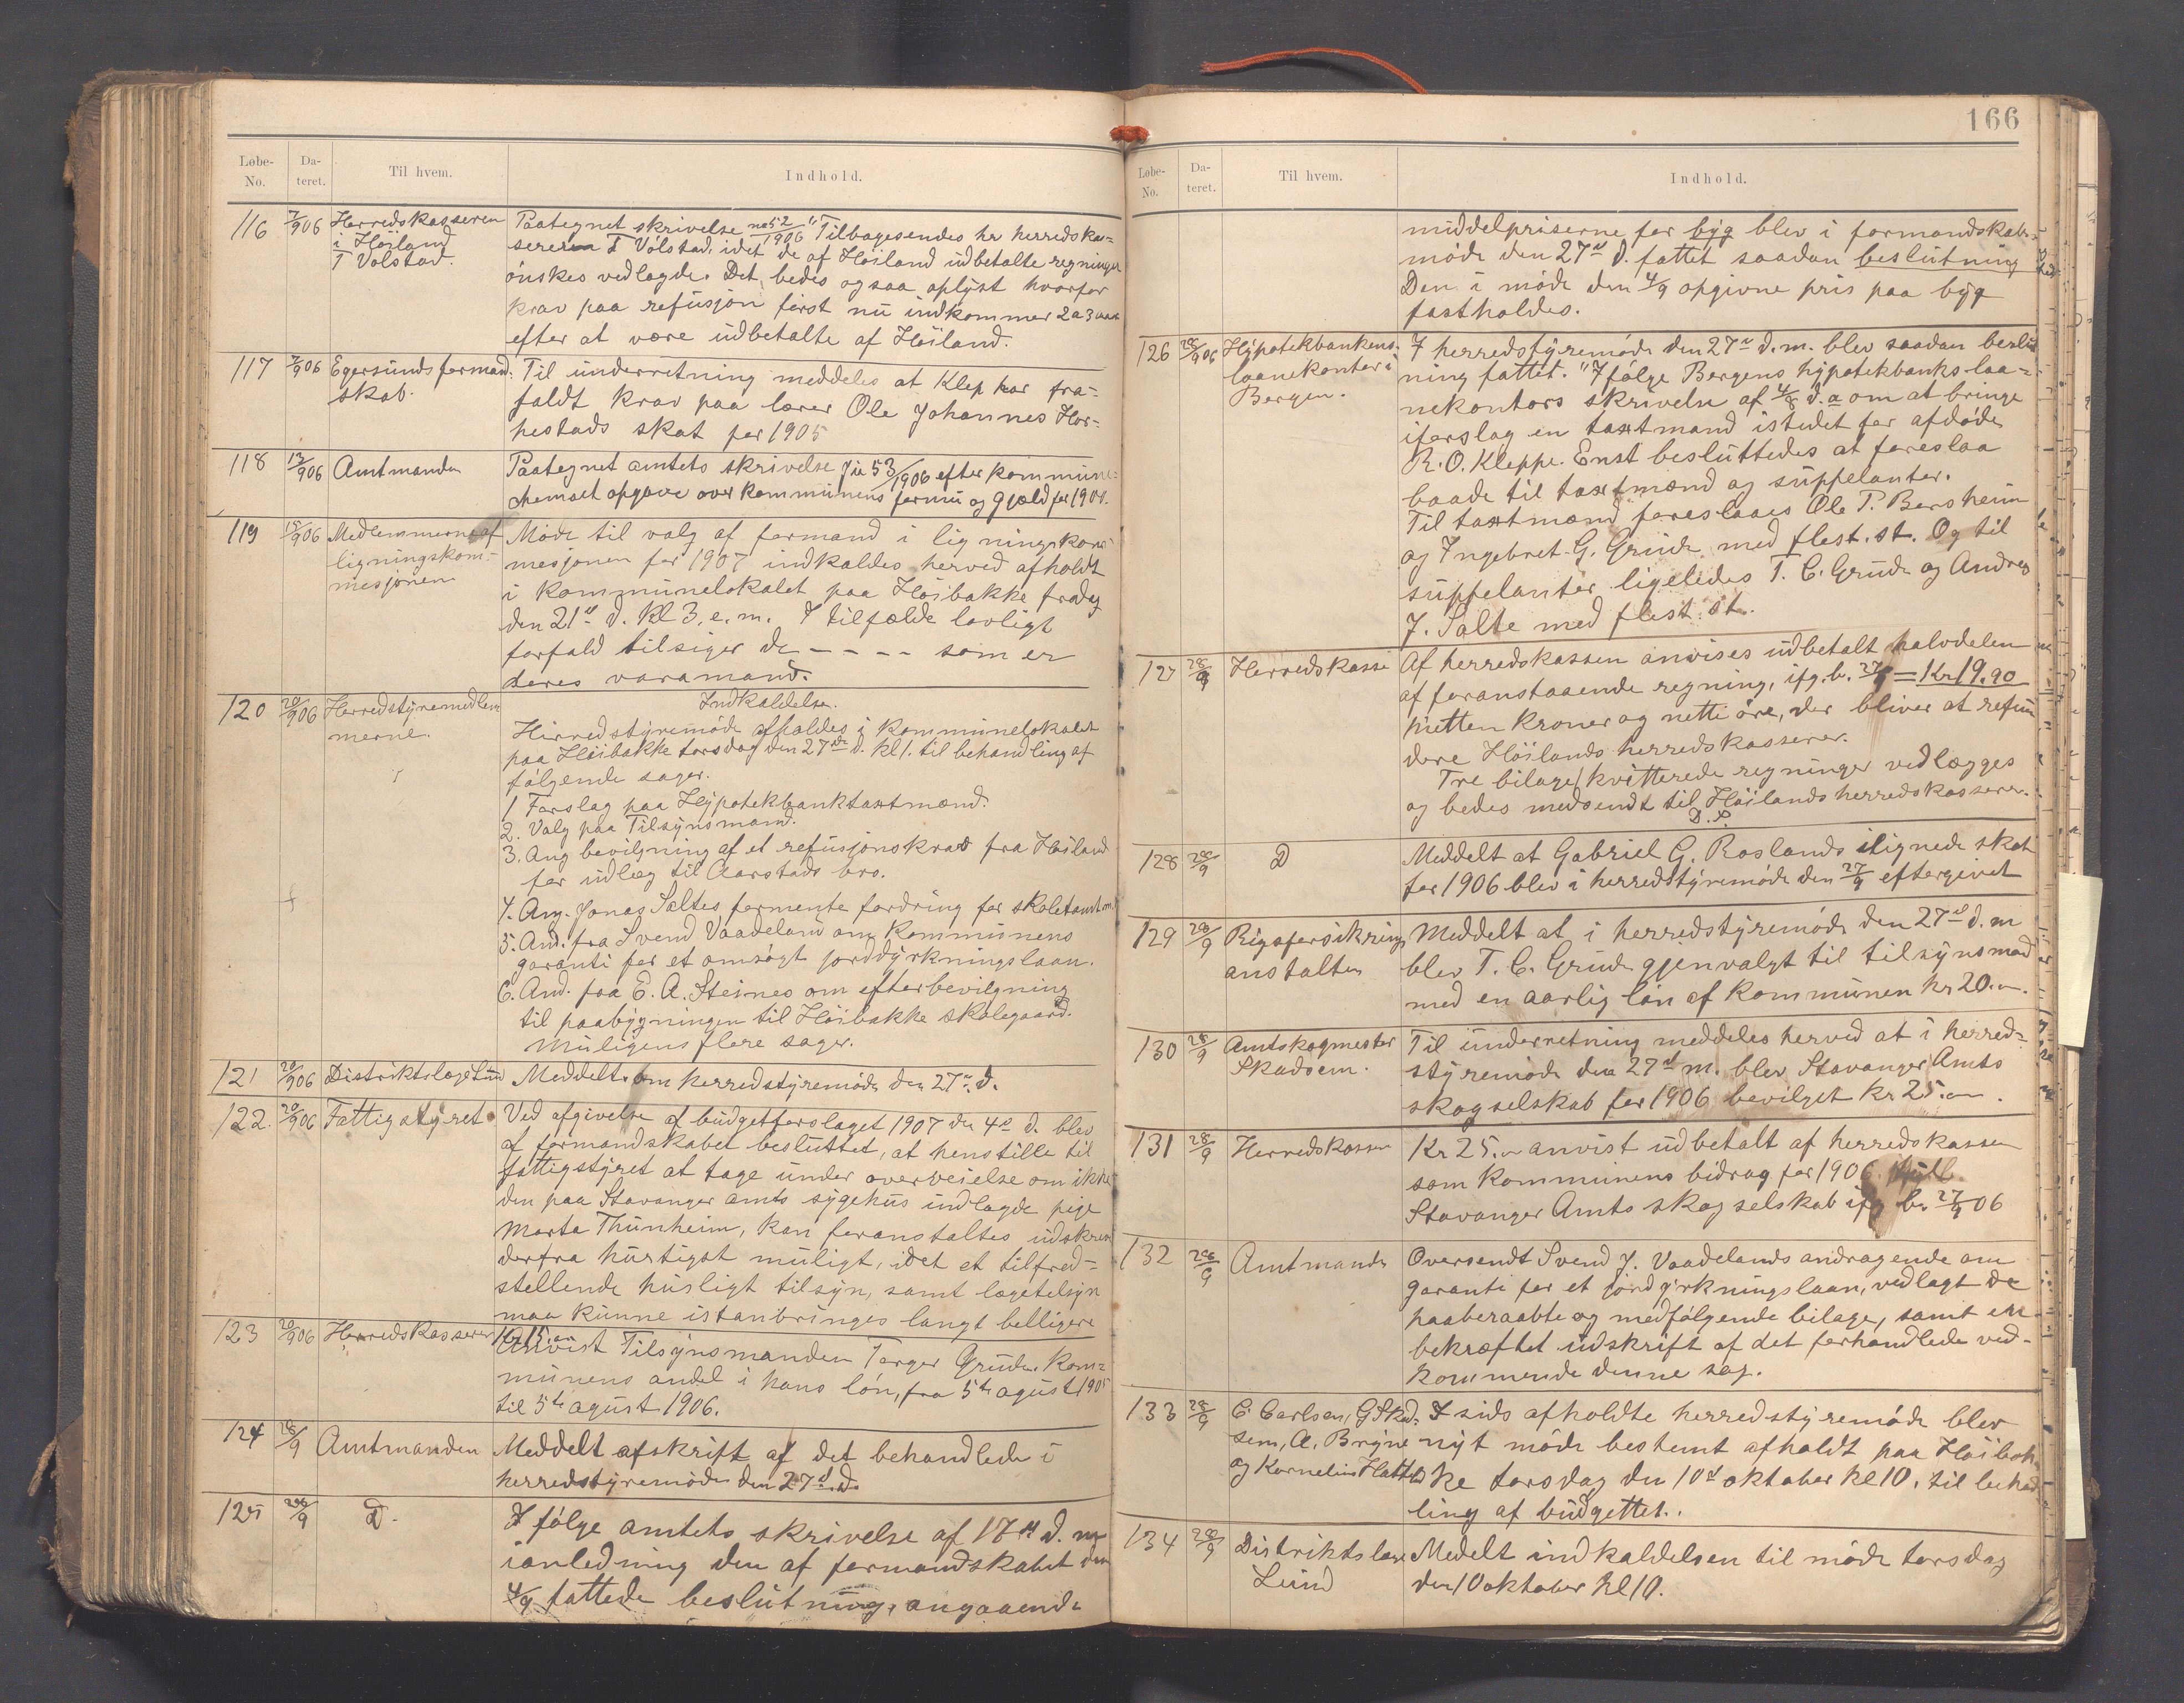 Løbe-No. Da-teret. Til hvem. Indhold.
116 7/9 06 Herredskasseren i Höiland T Volstad.
Paategnet skrivelse no 52/1906 "Tilbagesendes hr herredskas=
sereren T Volstad, idet de af Höiland udbetalte regninger
önskes vedlagde. Det bedes ogsaa oplyst hvorfor
krav paa refusjon först nu indkommer 2 a 3 aar
efter at være udbetalte af Höiland.
117 7/9 06 Egersunds formandskab.
Til underretning meddeles at Klep har fra=
faldt krav paa lærer Ole Johannes Hor=
pestads skat for 1905
118 13/9 06 Amtmanden
Paategnet amtets skrivelse 53/1906 efter kommune=
opgave over kommunens formu og gjæld for
119 18/9 06 Medlemmerne af ligningskommesjonen
Møde til valg af formand i ligningskom
mesjonen for 1907 indkaldes herved afholdt
i kommunelokalet paa Höibakke fredag
den 21de d. Kl 3. e. m. I tilfælde lovligt
forfald tilsiger de - - - - som er
deres varamand.
120 20/9 06 Herredstyremedlemmerne.
Indkaldelse.
Herredstyremöde afholdes i kommunelokalet
paa Höibakke torsdag den 27de d. kl 1. til behandling af
fölgende sager.
1 Forslag paa Hypotekbanktaxtmænd.
2. Valg paa Tilsynsmand.
3. Ang bevilgning af et refusjonskrav fra Höiland
for udlæg til Aarstads bro.
4. Ang. Jonas Saltes formente fordring for skoletomt
5. And. fra Svend Vaadeland om kommunens
garanti for et omsögt jorddyrkningslaan.
6. And. fra E. A. Steines om efterbevilgning
til paabygningen til Höibakke skolegaard.
Muligens flere sager.
121 20/9 06 Distriktslæge Lund
Meddelt om herredstyremöde den 27de d.
122. 20/9 06 Fattigstyret
Ved afgivelse af budgetforslaget 1907 den 4de d. blev
af formandskabet besluttet, at henstille til
fattigstyret at tage under overveielse om ikke
den paa Stavanger amts sygehus indlagde pige
Marta Thunheim, kan foranstaltes udskrevet
derfra hurtigst muligt, idet et tilfred=
stellende husligt tilsyn, samt lægetilsyn
maa kunne istanbringes langt belligere
123 20/9 06 Herredskasserer
Kr 15.00
Anvist Tilsynsmanden Torger Grude, kom=
munens andel i hans lön, fra 5te agust 1905
til 5te agust 1906.
124 28/9 Amtmanden
Meddelt afskrift af det behandlede i
herredstyremöde den 27de d.
125 28/9 D.
I fölge amtets skrivelse af 17de d. m
ianledning den af formandskabet den
4/9 fattede beslutning, angaaende
166
Løbe-No. Da-teret. Til hvem. Indhold.
middelpriserne for byg blev i formandskabs=
möde den 27de d. fattet saadan beslutning
Den i möde den 4/9 opgivne pris paa byg
fastholdes.
126 28/9 06 Hypotekbankens laanekontor i Bergen.
I herredstyremöde den 27de d. m. blev saadan beslut
ning fattet. "Ifölge Bergens hypotekbanks laa=
nekontors skrivelse af 4/8 d. a om at bringe
iforslag en taxtmand istedet for afdöde
R. O. Kleppe. Enst besluttedes at foreslaa
baade til taxtmænd og suppelanter.
Til taxtmænd foreslaaes Ole P. Borsheim
og Ingebret G. Grude med flest. st. Og til
suppelanter ligeledes T. C. Grude og Andres
J. Salte med flest. st.
127 28/9 Herredskasse
Af herredskassen anvises udbetalt halvdelen
af foranstaaende regning, ifg. b. 27/9 = Kr 19.90
nitten kroner og nitti öre, der bliver at refun
dere Höilands herredskasserer.
Tre bilage/kvitterede regninger vedlægges
og bedes medsendt til Höilands herredskasserer.
D. S.
128 28/9 D
Meddelt at Gabriel G. Roslands ilignede skat
for 1906 blev i herredstyremöde den 27/9 eftergivet
129 28/9 Rigsforsikringsanstalten
Meddelt at i herredstyremöde den 27de d. m
blev T. C. Grude gjenvalgt til tilsynsmand
med en aarlig lön af kommunen kr 20.00.
130 28/9 Amtskogmester Skadsem.
Til underretning meddeles herved at i herred=
styremöde den 27de m. blev Stavanger Amts
skogselskab for 1906 bevilget Kr 25.00.
131 28/9 Herredskassen
Kr 25.00 anvist udbetalt af herredskassen
som kommunens bidrag for 1906
Stavanger Amts skogselskab ifg b. 27/9 06
132 28/9 Amtmanden
Oversendt Svend J. Vaadelands andragende om
garanti for et jorddyrkningslaan, vedlagt de
paaberaabte og medfölgende bilage, samt en
bekræftet udskrift af det forhandlede ved=
kommende denne sag.
133 28/9 C. Carlsen, G Skadsem, A. Bryne og Kornelius Hatteland
I sids afholdte herredstyremöde blev
nyt möde bestemt afholdt paa Höibak
ke torsdag den 10de oktober kl 10. til behand
ling af budgettet.
134 28/9 Distriktslæge Lund
Medelt indkaldelsen til möde torsdag
den 10 oktober kl 10.